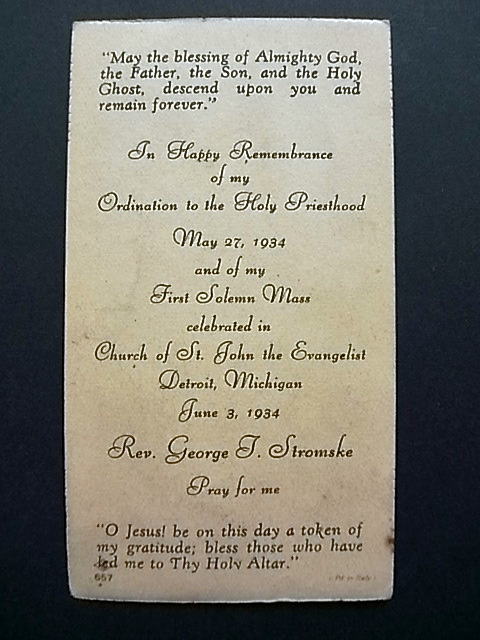 "May the blessing of Almighty God,
the Father, the Son, and the Holy
Ghost, descend upon you and
remain forever."
In Happy Remembrance
of my
Ordination to the Holy Priesthood
May 27, 1934
and of my
First Solemn Mass
celebrated in
Church of St. John the Evangelist
Detroit, Michigan
June 3, 1934
Rev. George T. Stromske
Pray for me
"O Jesus! be on this day a token of
my gratitude; bless those who have
led me to Thy Holy Altar."
657